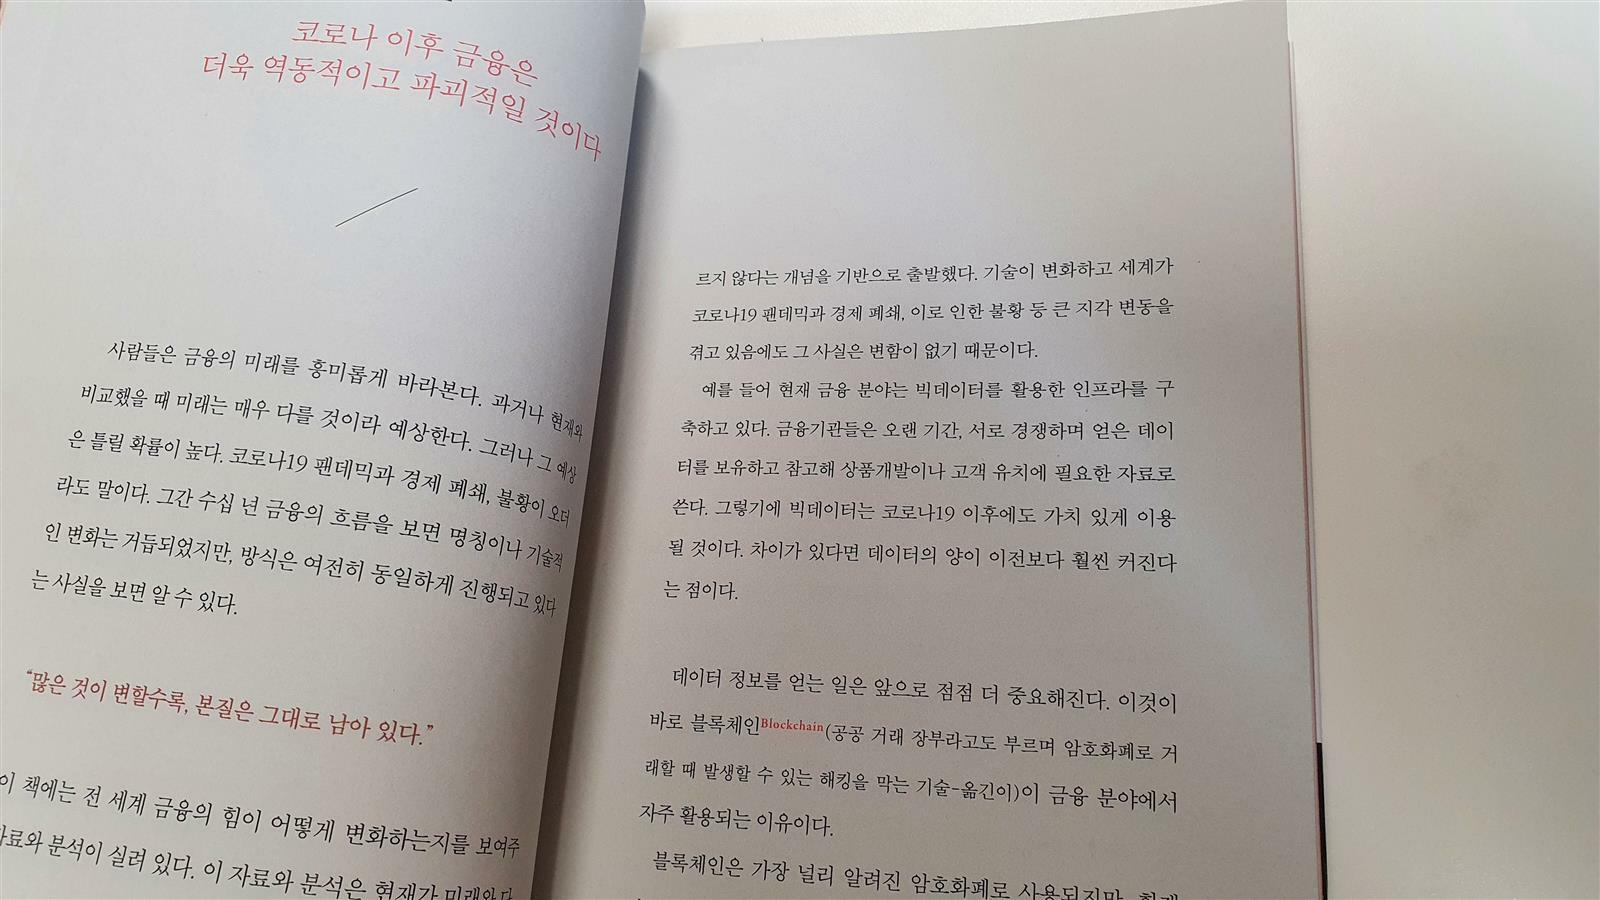 코로나 이후 금융은
더욱 역동적이고 파괴적일 것이다
사람들은 금융의 미래를 흥미롭게 바라본다. 과거나 현재와
비교했을 때 미래는 매우 다를 것이라 예상한다. 그러나 그 예상
은 틀릴 확률이 높다. 코로나19 팬데믹과 경제 폐쇄, 불황이 오더
라도 말이다. 그간 수십 년 금융의 흐름을 보면 명칭이나 기술적
인 변화는 거듭되었지만, 방식은 여전히 동일하게 진행되고 있다
는 사실을 보면 알 수 있다.
“많은 것이 변할수록, 본질은 그대로 남아 있다.”
이 책에는 전 세계 금융의 힘이 어떻게 변화하는지를 보여주
자료와 분석이 실려 있다. 이 자료와 분석은 현재가 미래와 다
르지 않다는 개념을 기반으로 출발했다. 기술이 변화하고 세계가
코로나19 팬데믹과 경제 폐쇄, 이로 인한 불황 등 큰 지각 변동을
겪고 있음에도 그 사실은 변함이 없기 때문이다.
예를 들어 현재 금융 분야는 빅데이터를 활용한 인프라를 구
축하고 있다. 금융기관들은 오랜 기간, 서로 경쟁하며 얻은 데이
터를 보유하고 참고해 상품개발이나 고객 유치에 필요한 자료로
쓴다. 그렇기에 빅데이터는 코로나19 이후에도 가치 있게 이용
될 것이다. 차이가 있다면 데이터의 양이 이전보다 훨씬 커진다
는 점이다.
데이터 정보를 얻는 일은 앞으로 점점 더 중요해진다. 이것이
바로 블록체인Blockchain(공공 거래 장부라고도 부르며 암호화폐로 거
래할 때 발생할 수 있는 해킹을 막는 기술-옮긴이)이 금융 분야에서
자주 활용되는 이유이다.
블록체인은 가장 널리 알려진 암호화폐로 사용되지만,